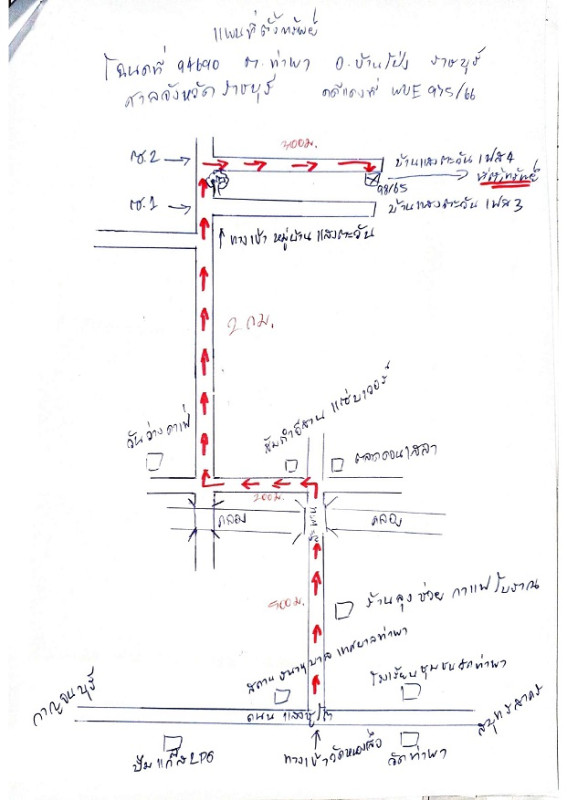 แผนที่ตั้งทรัพย์
โฉนดที่ 94690 ต.ท่าผา อ.บ้านโป่ง ราชบุรี
ศาลจังหวัดราชบุรี คดีแดงที่ ผบE 975/66
300ม.
ซ.2
บ้านแสงตะวัน เฟส 4
ที่ตั้งทรัพย์
98/65
ซ.1
บ้านแสงตะวัน เฟส 3
ทางเข้า หมู่บ้าน แสงตะวัน
2 กม.
วันว่างคาเฟ่
ส้มตำอีสาน แซ่บเวอร์
ตลาดดอนเสลา
200ม.
คลอง
คลอง
500ม.
ร้านลุงช่วย กาแฟโบราณ
สถานธนานุบาล เทศบาลท่าผา
โรงเรียนชุมชนวัดท่าผา
กาญจนบุรี
ถนน แสงชูโต
สมุทรสาคร
ปั๊มแก๊ส LPG
ทางเข้าวัดหนองเสือ
วัดท่าผา